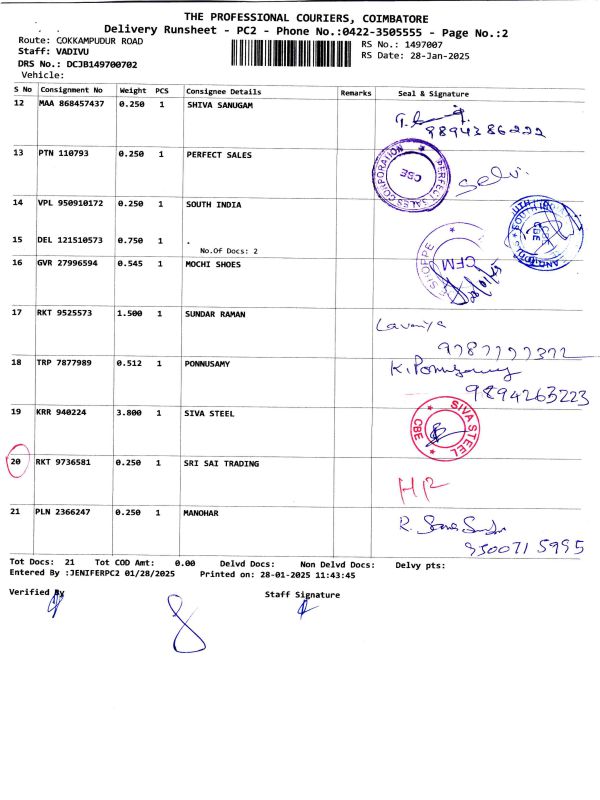 THE PROFESSIONAL COURIERS, COIMBATORE
Delivery Runsheet - PC2 - Phone No.:0422-3505555 - Page No.:2
Route: COKKAMPUDUR ROAD RS No.: 1497007
Staff: VADIVU RS Date: 28-Jan-2025
DRS No.: DCJB149700702
Vehicle:
S No Consignment No Weight PCS Consignee Details Remarks Seal & Signature
12 MAA 868457437 0.250 1 SHIVA SANUGAM
9894386222
13 PTN 110793 0.250 1 PERFECT SALES
PERFECT SALES CORPORATION CBE
Selvi
14 VPL 950910172 0.250 1 SOUTH INDIA
CBE
15 DEL 121510573 0.750 1 .
No.Of Docs: 2
16 GVR 27996594 0.545 1 MOCHI SHOES
SHOPPE CFM
17 RKT 9525573 1.500 1 SUNDAR RAMAN
Lavanya
18 TRP 7877989 0.512 1 PONNUSAMY
K. Ponnusamy
9894263223
19 KRR 940224 3.800 1 SIVA STEEL
SIVA STEEL CBE
20 RKT 9736581 0.250 1 SRI SAI TRADING
21 PLN 2366247 0.250 1 MANOHAR
R.
9500715995
Tot Docs: 21 Tot COD Amt: 0.00 Delvd Docs: Non Delvd Docs: Delvy pts:
Entered By :JENIFERPC2 01/28/2025 Printed on: 28-01-2025 11:43:45
Verified By Staff Signature